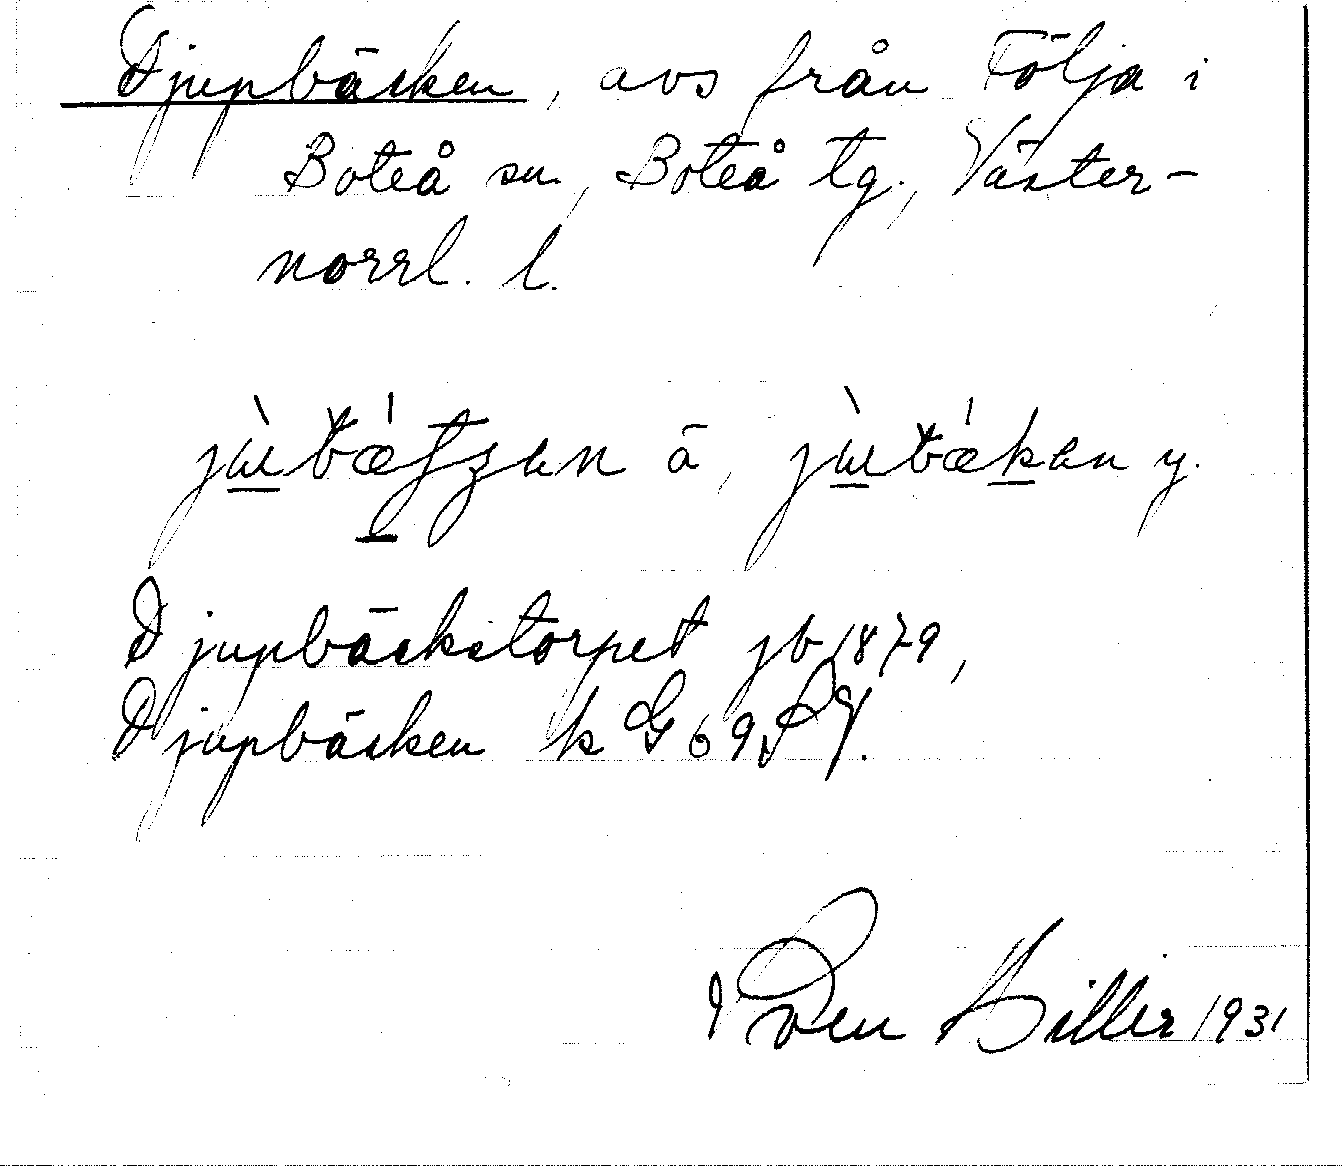 Djupbäcken, avs från Följa i
Boteå sn, Boteå tg., Väster-
norrl. l.
ä, y.
Djupbäckstorpet jb 1879,
Djupbäcken k G
Sven Hiller 1931